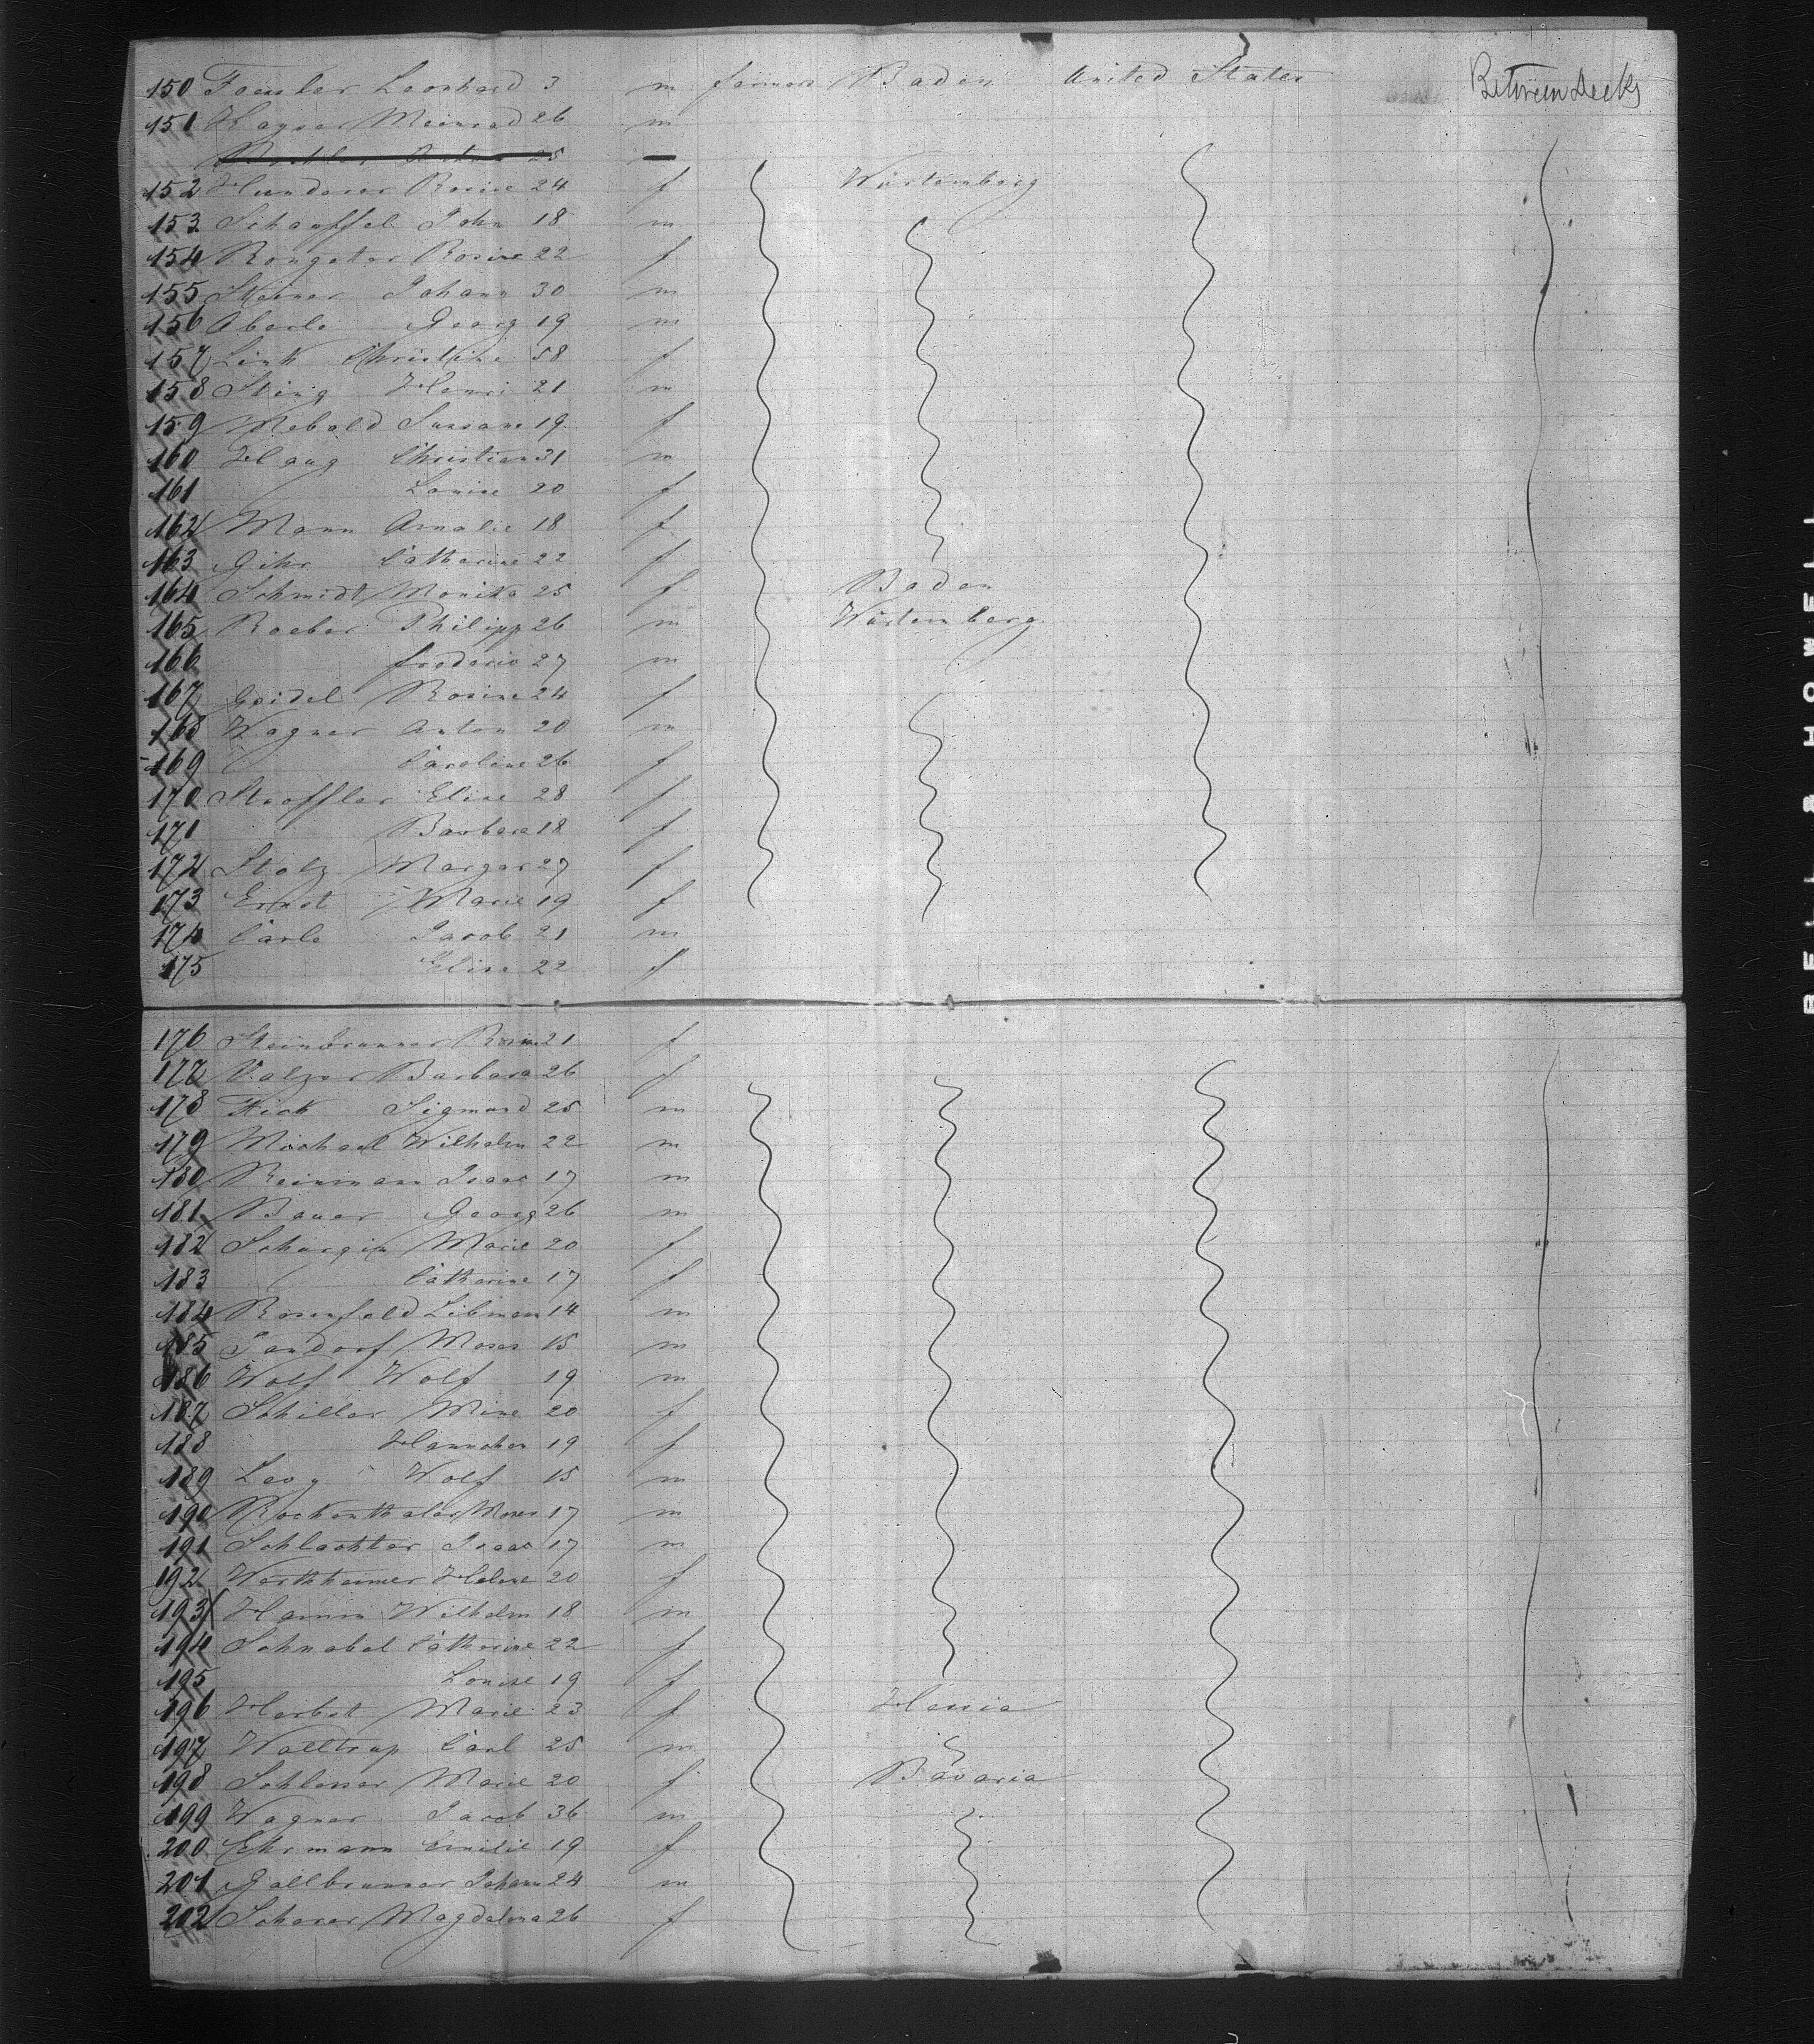 150 Faessler Leonhard 3 m farmers Baden United States Between Decks
151 Kayser Meinrad 26 m
25
152 Hunderer Rosine 24 f Würtemberg
153 Schauffel John 18 m
154 Rongeter Rosine 22 f
155 Steiner Johann 30 m
156 Aberle Georg 19 m
157 Link Christine 58 f
158 Sting Henri 21 m
159 Mebold Sussane 19 f
160 Haug Christian 31 m
161 Louise 20 f
162 Mann Amalie 18 f
163 Gihr Catherine 22 f
164 Schmidt Monika 25 f Baden
165 Roeber Philipp 26 m Würtemberg
166 frederic 27 m
167 Geidel Rosine 24 f
168 Wagner Anton 20 m
169 Caroline 26 f
170 Stroffler Elise 28 f
171 Barbara 18 f
172 Stolz Margar 27 f
173 Ernst Marie 19 f
174 Carle Jacob 21 m
175 Elise 22 f
176 Steinbrunner Rosine 21 f
177 Valzer Barbara 26 f
178 Fick Sigmund 25 m
179 Michael Wilhelm 22 m
180 Reinmann Isaac 17 m
181 Bauer Georg 26 m
182 Schurgin Marie 20 f
183 Catherine 17 f
184 Rosenfeld Libman 14 m
185 Jandorf Moses 15 m
186 Wolf Wolf 19 m
187 Schiller Mine 20 f
188 Hannchen 19 f
189 Levy Wolf 15 m
190 Rockenthaler Moses 17 m
191 Schlachter Isaac 17 m
192 Wertheimer Helene 20 f
193 Hamm Wilhelm 18 m
194 Schnabel Catherine 22 f
195 Louise 19 f
196 Herbst Marie 23 f Hessia
197 Walttrup Carl 25 m
198 Schlosser Marie 20 f Bavaria
199 Wagner Jacob 36 m
200 Ehrmann Emilie 19 f
201 Gallbrunner Johann 24 m
202 Scherer Magdalena 26 f
BELL & HOWELL